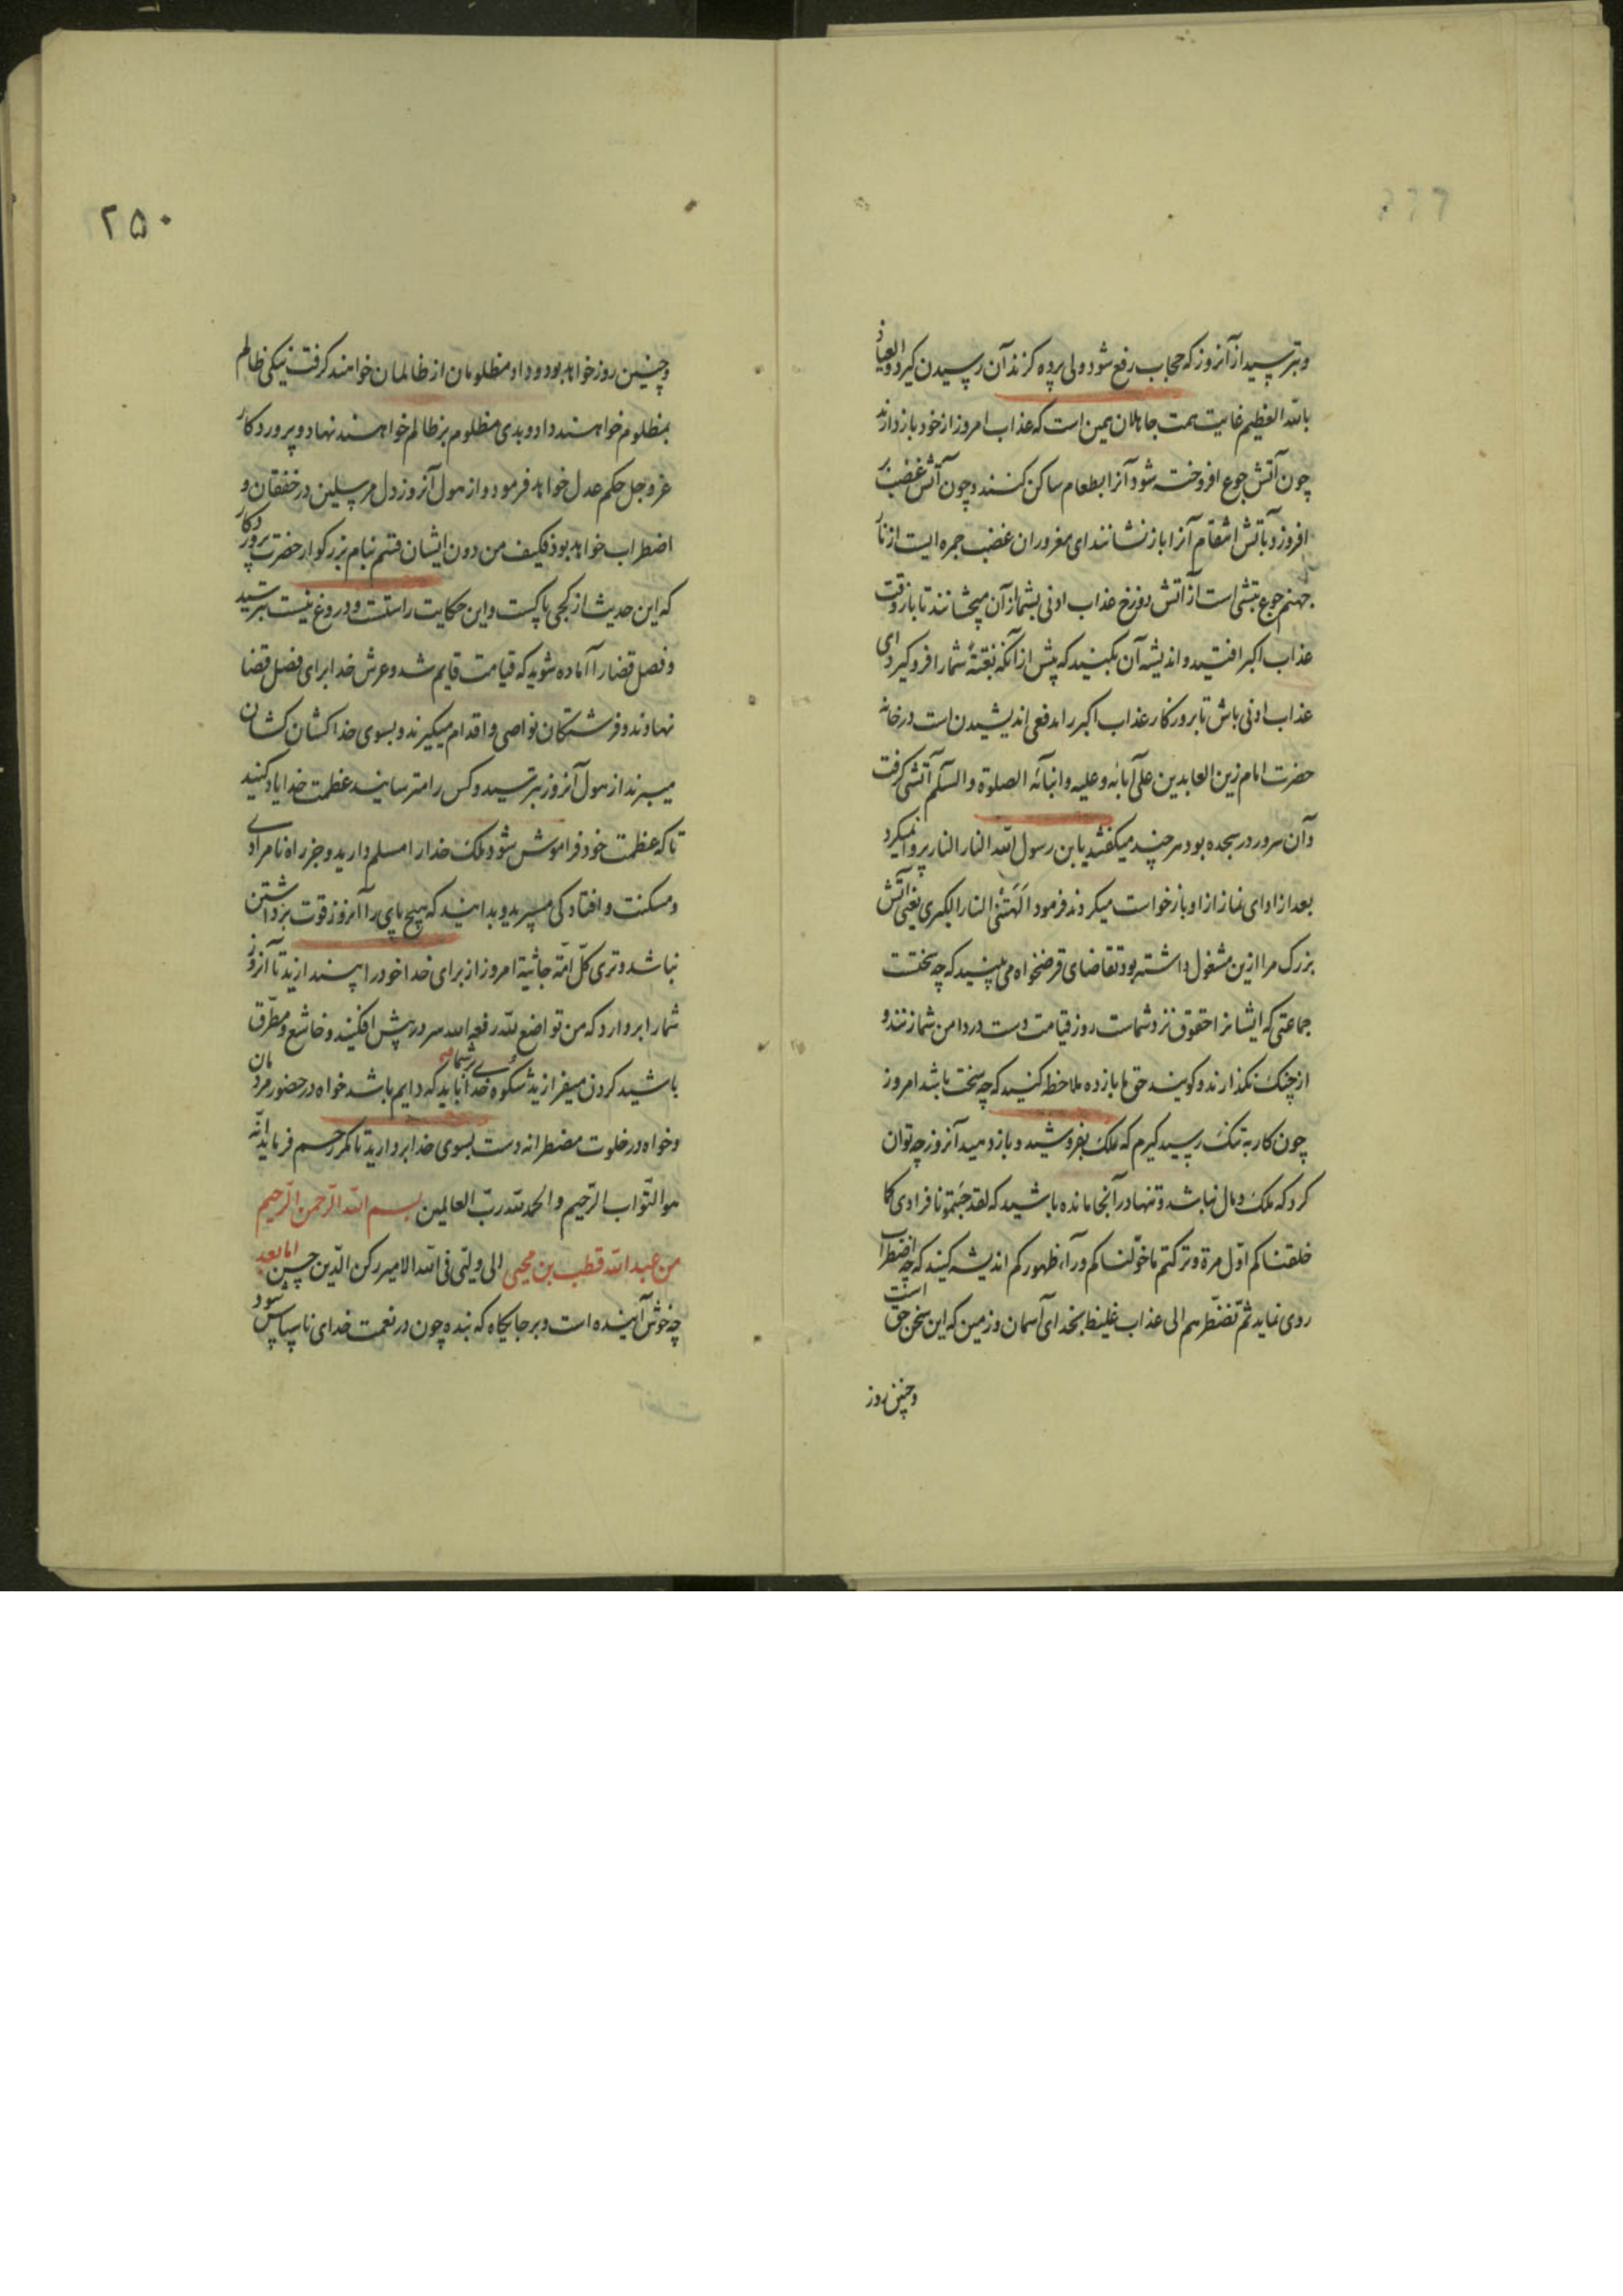 وبترسید از آنروز که حجاب رفع شود ولی پرده گزند آن رسیدن گیرد والعیاذ
بالله العظیم غایت همت جاهلان همین است که عذاب امروز از خود باز دارند
چون آتش جوع افروخته شود آنرا بطعام ساکن کنند و چون آتش غضب بر
افروزد بآتش انتقام آنرا باز نشانند ای مغروران غضب جمره ایست از نار
جهنم جوع تبشی است از آتش دوزخ عذاب ادنی بشما از آن میچشانند تا باز وقت
عذاب اکبر افتید و اندیشه آن بکنید که پیش از آنکه بغتةً شما را فرو گیرد ای
عذاب ادنی باش تا بروزگار عذاب اکبر را مدفعی اندیشیدن است در خانه
حضرت امام زین العابدین علی آبائه و علیه و ابنائه الصلوة والسلم آتشی گرفت
و آن سرور در سجده بود هر چند میگفتند یابن رسول الله النار النار پروا نمیکرد
بعد از ادای نماز از او باز خواست میکردند فرمود الهتنی النار الکبری یعنی آتش
بزرگ مرا ازین مشغول داشته بود تقاضای قرضخواه می بینید که چه سختست
جماعتی که ایشانرا حقوق نزد شماست روز قیامت دست در دامن شما زنند و
از چنک نگذارند و گویند حق ما باز ده ملاحظه کنید که چه سخت باشد امروز
چون کار به تنک رسید گیرم که ملک بفروشید و باز دهید آنروز چه توان
کرد که ملک و مال نباشد و تنها در آنجا مانده باشید که لقد جئتمونا فرادی کما
خلقناکم اوّل مرة و ترکتم ما خوّلناکم ورآء ظهورکم اندیشه کنید که چه اضطراب
روی نماید ثمّ نضطّرهم الی عذاب غلیظ بخدای آسمان و زمین که این سخن حق است
و چنین روز
۲۵۰
و چنین روز خواهد بود و داد مظلومان از ظالمان خواهند گرفت نیکی ظالم
بمظلوم خواهند داد و بدی مظلوم بر ظالم خواهند نهاد و پروردکار
عز و جل حکم عدل خواهد فرمود و از هول آنروز دل مرسلین در خفقان و
اضطراب خواهد بود فکیف من دون ایشان قسم بنام بزرکوار حضرت پروردکار
که این حدیث از کجی پاکست و این حکایت راستست و دروغ نیست بترسید
و فصل قضا را آماده شوید که قیامت قایم شد و عرش خدا برای فصل قضا
نهادند و فرشتکان نواصی و اقدام میکیرند و بسوی خدا کشان کشان
میبرند از هول آنروز بترسید و کس را مترسانید عظمت خدا یاد کنید
تا که عظمت خود فراموش شود ملک خدا را مسلم دارید و جز راه نامرادی
و مسکنت و افتادکی مسپرید و بدانید که هیچ پای را آنروز قوت برداشتن
نباشد و تری کلّ امّة جاثیة امروز از برای خدا خود را بیندازید تا آنروز
شما را بردارد که من تواضع لله رفعه الله سر در پیش افکنید و خاشع و مطرق
باشید کردن میفرازید شکوه خدا باید که دایم باشد خواه در حضور مردمان
و خواه در خلوت مضطرانه دست بسوی خدا بردارید تا مگر رحم فرماید انّه
هو التّواب الرّحیم و الحمد لله ربّ العالمین بسم الله الرّحمن الرّحیم
من عبد الله قطب بن محیی الی ولیّی فی الله الامیر رکن الدّین حسین اما بعد
چه خوش آینده است و بر جایکاه که بنده چون در نعمت خدای ناسپاس شود